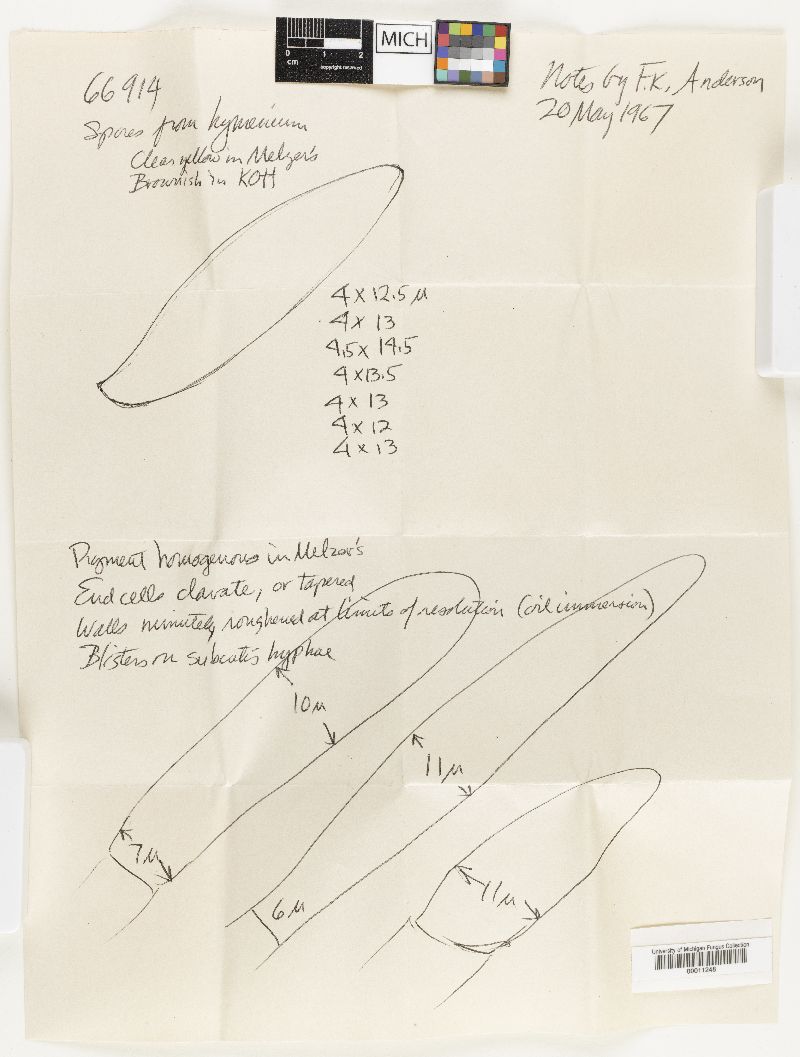 0 1 2
cm
copyright reserved
MICH
66914
Spores from hymenium
Clear yellow in Melzer's
Brownish in KOH
Notes by F.K. Anderson
20 May 1967
4 x 12.5 µ
4 x 13
4.5 x 14.5
4 x 13.5
4 x 13
4 x 12
4 x 13
Pigment homogenous in Melzer's
End cells clavate, or tapered
Walls minutely roughened at limits of resolution (oil immersion)
Blisters on subcutis hyphae
10 µ
11 µ
7 µ
6 µ
11 µ
University of Michigan Fungus Collection
00011248